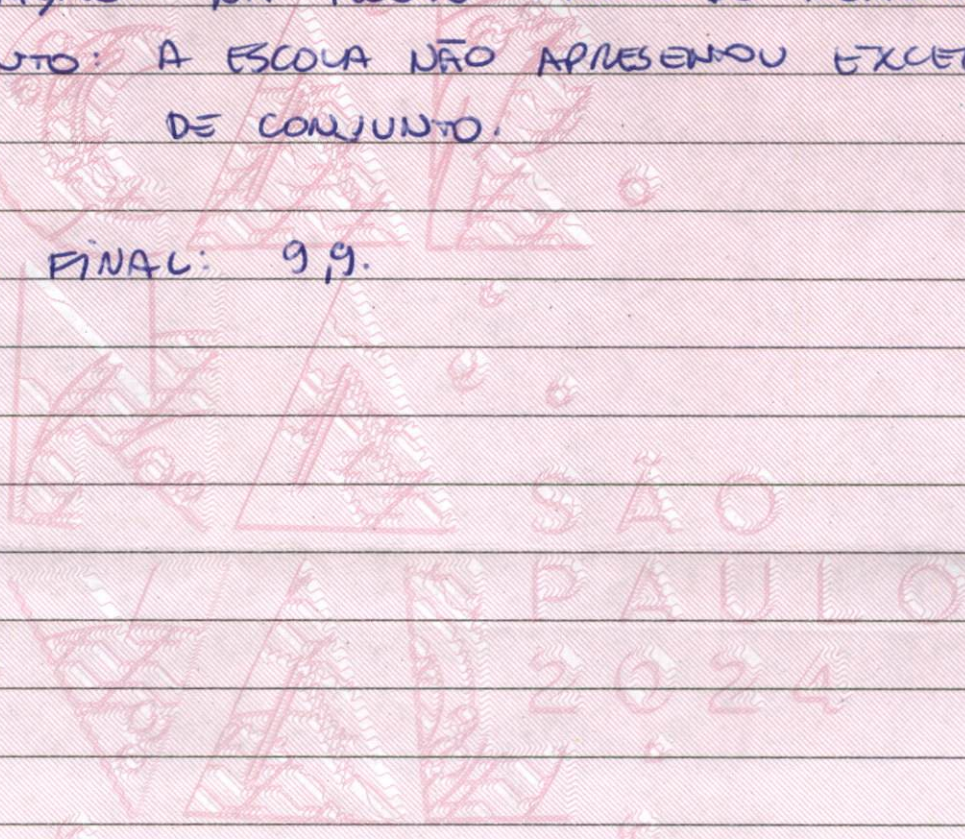 NTO: A ESCOLA NÃO APRESENTOU EXCE
DE CONJUNTO.
FINAL: 9,9.
CAR
NA
VAL
SÃO
PAULO
2024